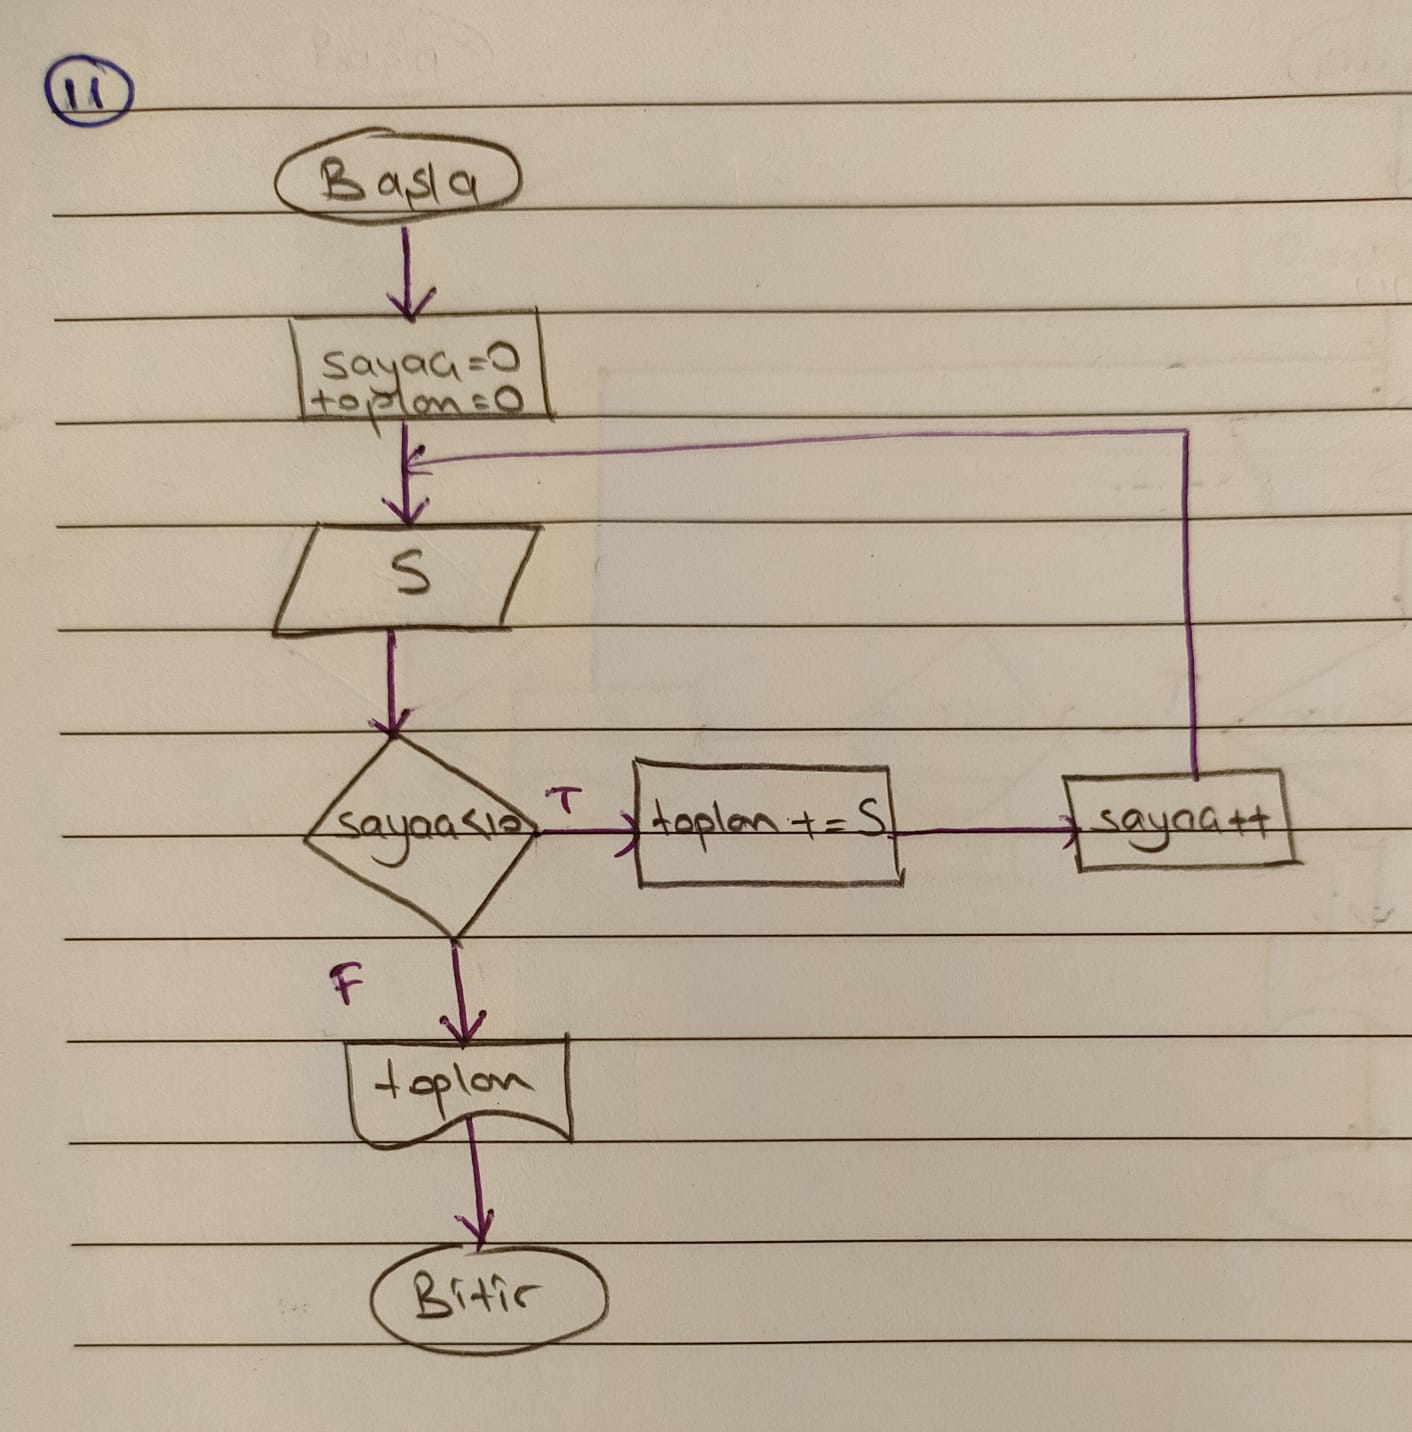 11
Başla
sayaç=0
toplam=0
S
sayaç<10
T
toplam += S
sayaç++
F
toplam
Bitir